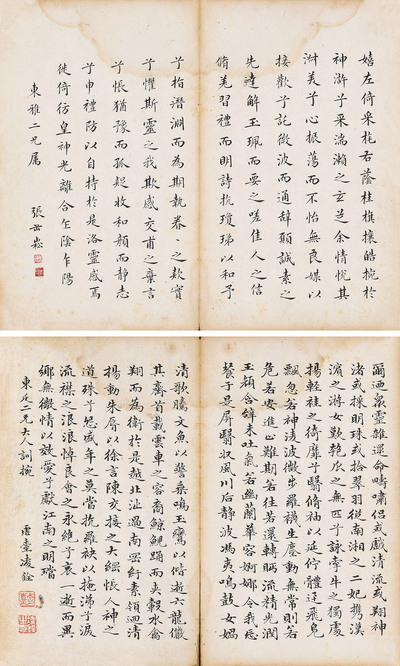 嬉左倚采旄右蔭桂旗攘皓捥於
神滸兮采湍瀨之玄芝余情悅其
淑美兮心振蕩而不怡無良媒以
接歡兮託微波而通辭願誠素之
先達解玉珮而要之嗟佳人之信
脩羌習禮而明詩抗瓊珶以和予
兮指潛淵而為期執眷〻之款實
兮懼斯靈之我欺感交甫之棄言
兮悵猶豫而狐疑收和顏而靜志
兮申禮防以自持於是洛靈感焉
徙倚彷皇神光離合乍陰乍陽
東雅二兄屬
張崧
爾迺眾靈雜遝命疇嘯侶或戲清流或翔神
渚或採明珠或拾翠羽從南湘之二妃攜漢
濱之游女歎匏瓜之無匹兮詠牽牛之獨處
揚輕袿之猗靡兮翳脩袖以延佇體迅飛鳧
飄忽若神淩波微步羅襪生塵動無常則若
危若安進止難期若往若還轉眄流精光潤
玉顏含辭未吐氣若幽蘭華容婀娜令我忘
餐于是屏翳收風川后靜波馮夷鳴鼓女媧
清歌騰文魚以警乘鳴玉鸞以偕逝六龍儼
其齊首載雲車之容裔鯨鯢踊而夾轂水禽
翔而為衛於是越北沚過南岡紆素領迴清
揚動朱脣以徐言陳交接之大綱悵人神之
道殊兮怨盛年之莫當抗羅袂以掩涕兮淚
流襟之浪浪悼良會之永絕兮哀一逝而異
鄉無微情以效愛兮獻江南之明璫
東二兄大人訓捥
臺淩銓